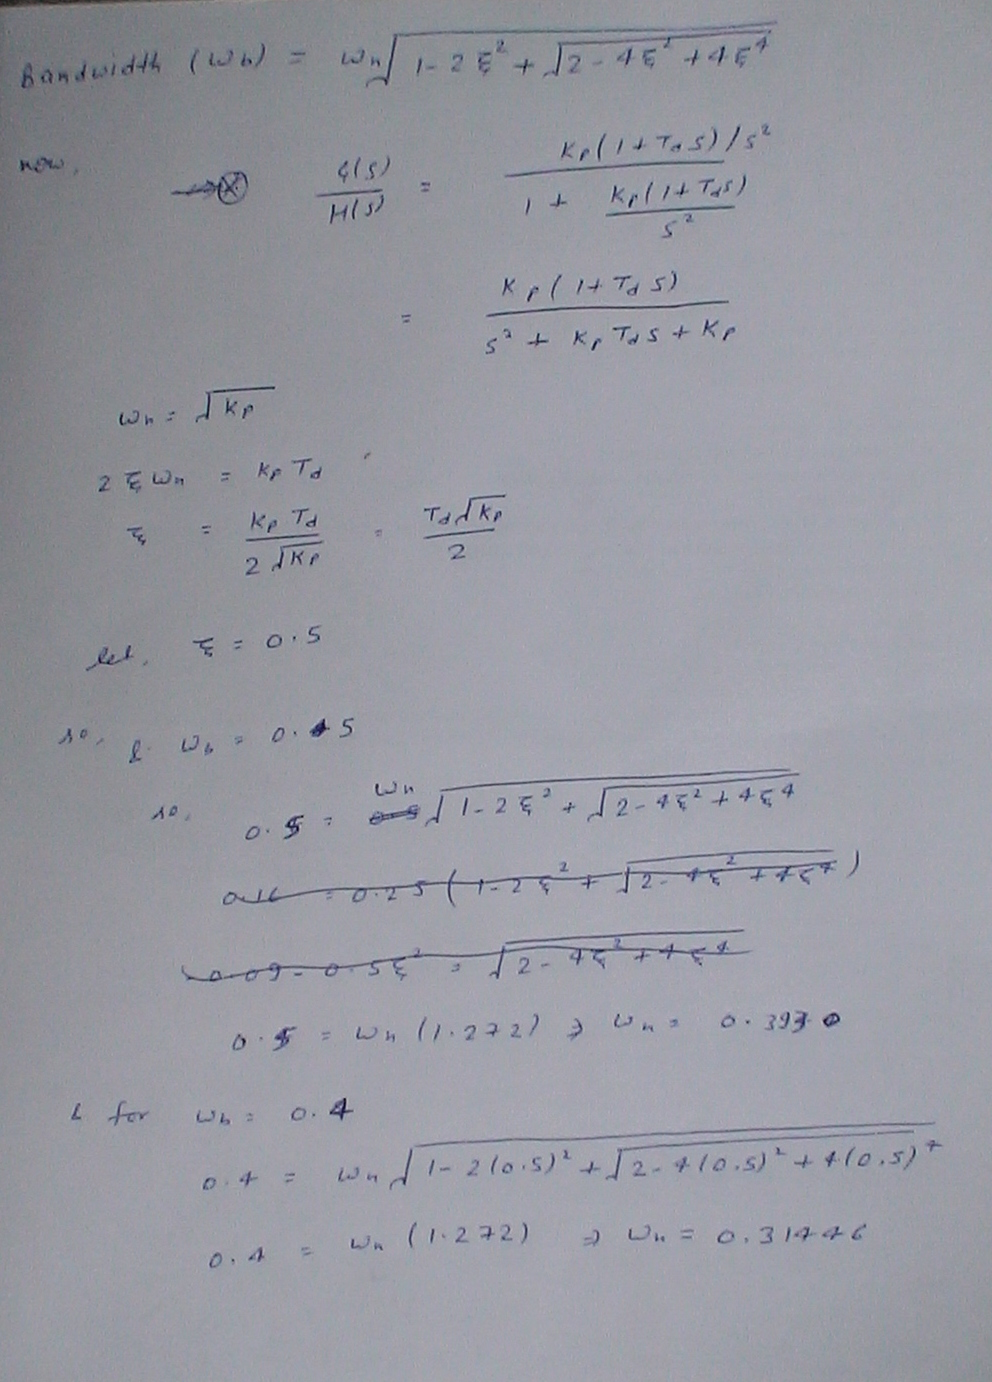 Bandwidth (ωb) = ωn√(1-2ξ² + √(2-4ξ² +4ξ⁴))
now,
G(s)/H(s) = (Kp(1+Tds)/s²) / (1 + Kp(1+Tds)/s²)
= Kp(1+Tds) / (s² + KpTds + Kp)
ωn = √Kp
2ξωn = KpTd
ξ = KpTd / 2√Kp = Td√Kp / 2
let, ξ = 0.5
so, & ωb = 0.5
so, 0.5 = ωn√(1-2ξ² + √(2-4ξ²+4ξ⁴))
0.16 = 0.25(1-2ξ² + √(2-4ξ²+4ξ⁴))
0.09-0.5ξ² = √(2-4ξ²+4ξ⁴)
0.5 = ωn(1.272) ⇒ ωn = 0.3930
& for ωb = 0.4
0.4 = ωn√(1-2(0.5)² + √(2-4(0.5)² +4(0.5)⁴))
0.4 = ωn(1.272) ⇒ ωn = 0.31446